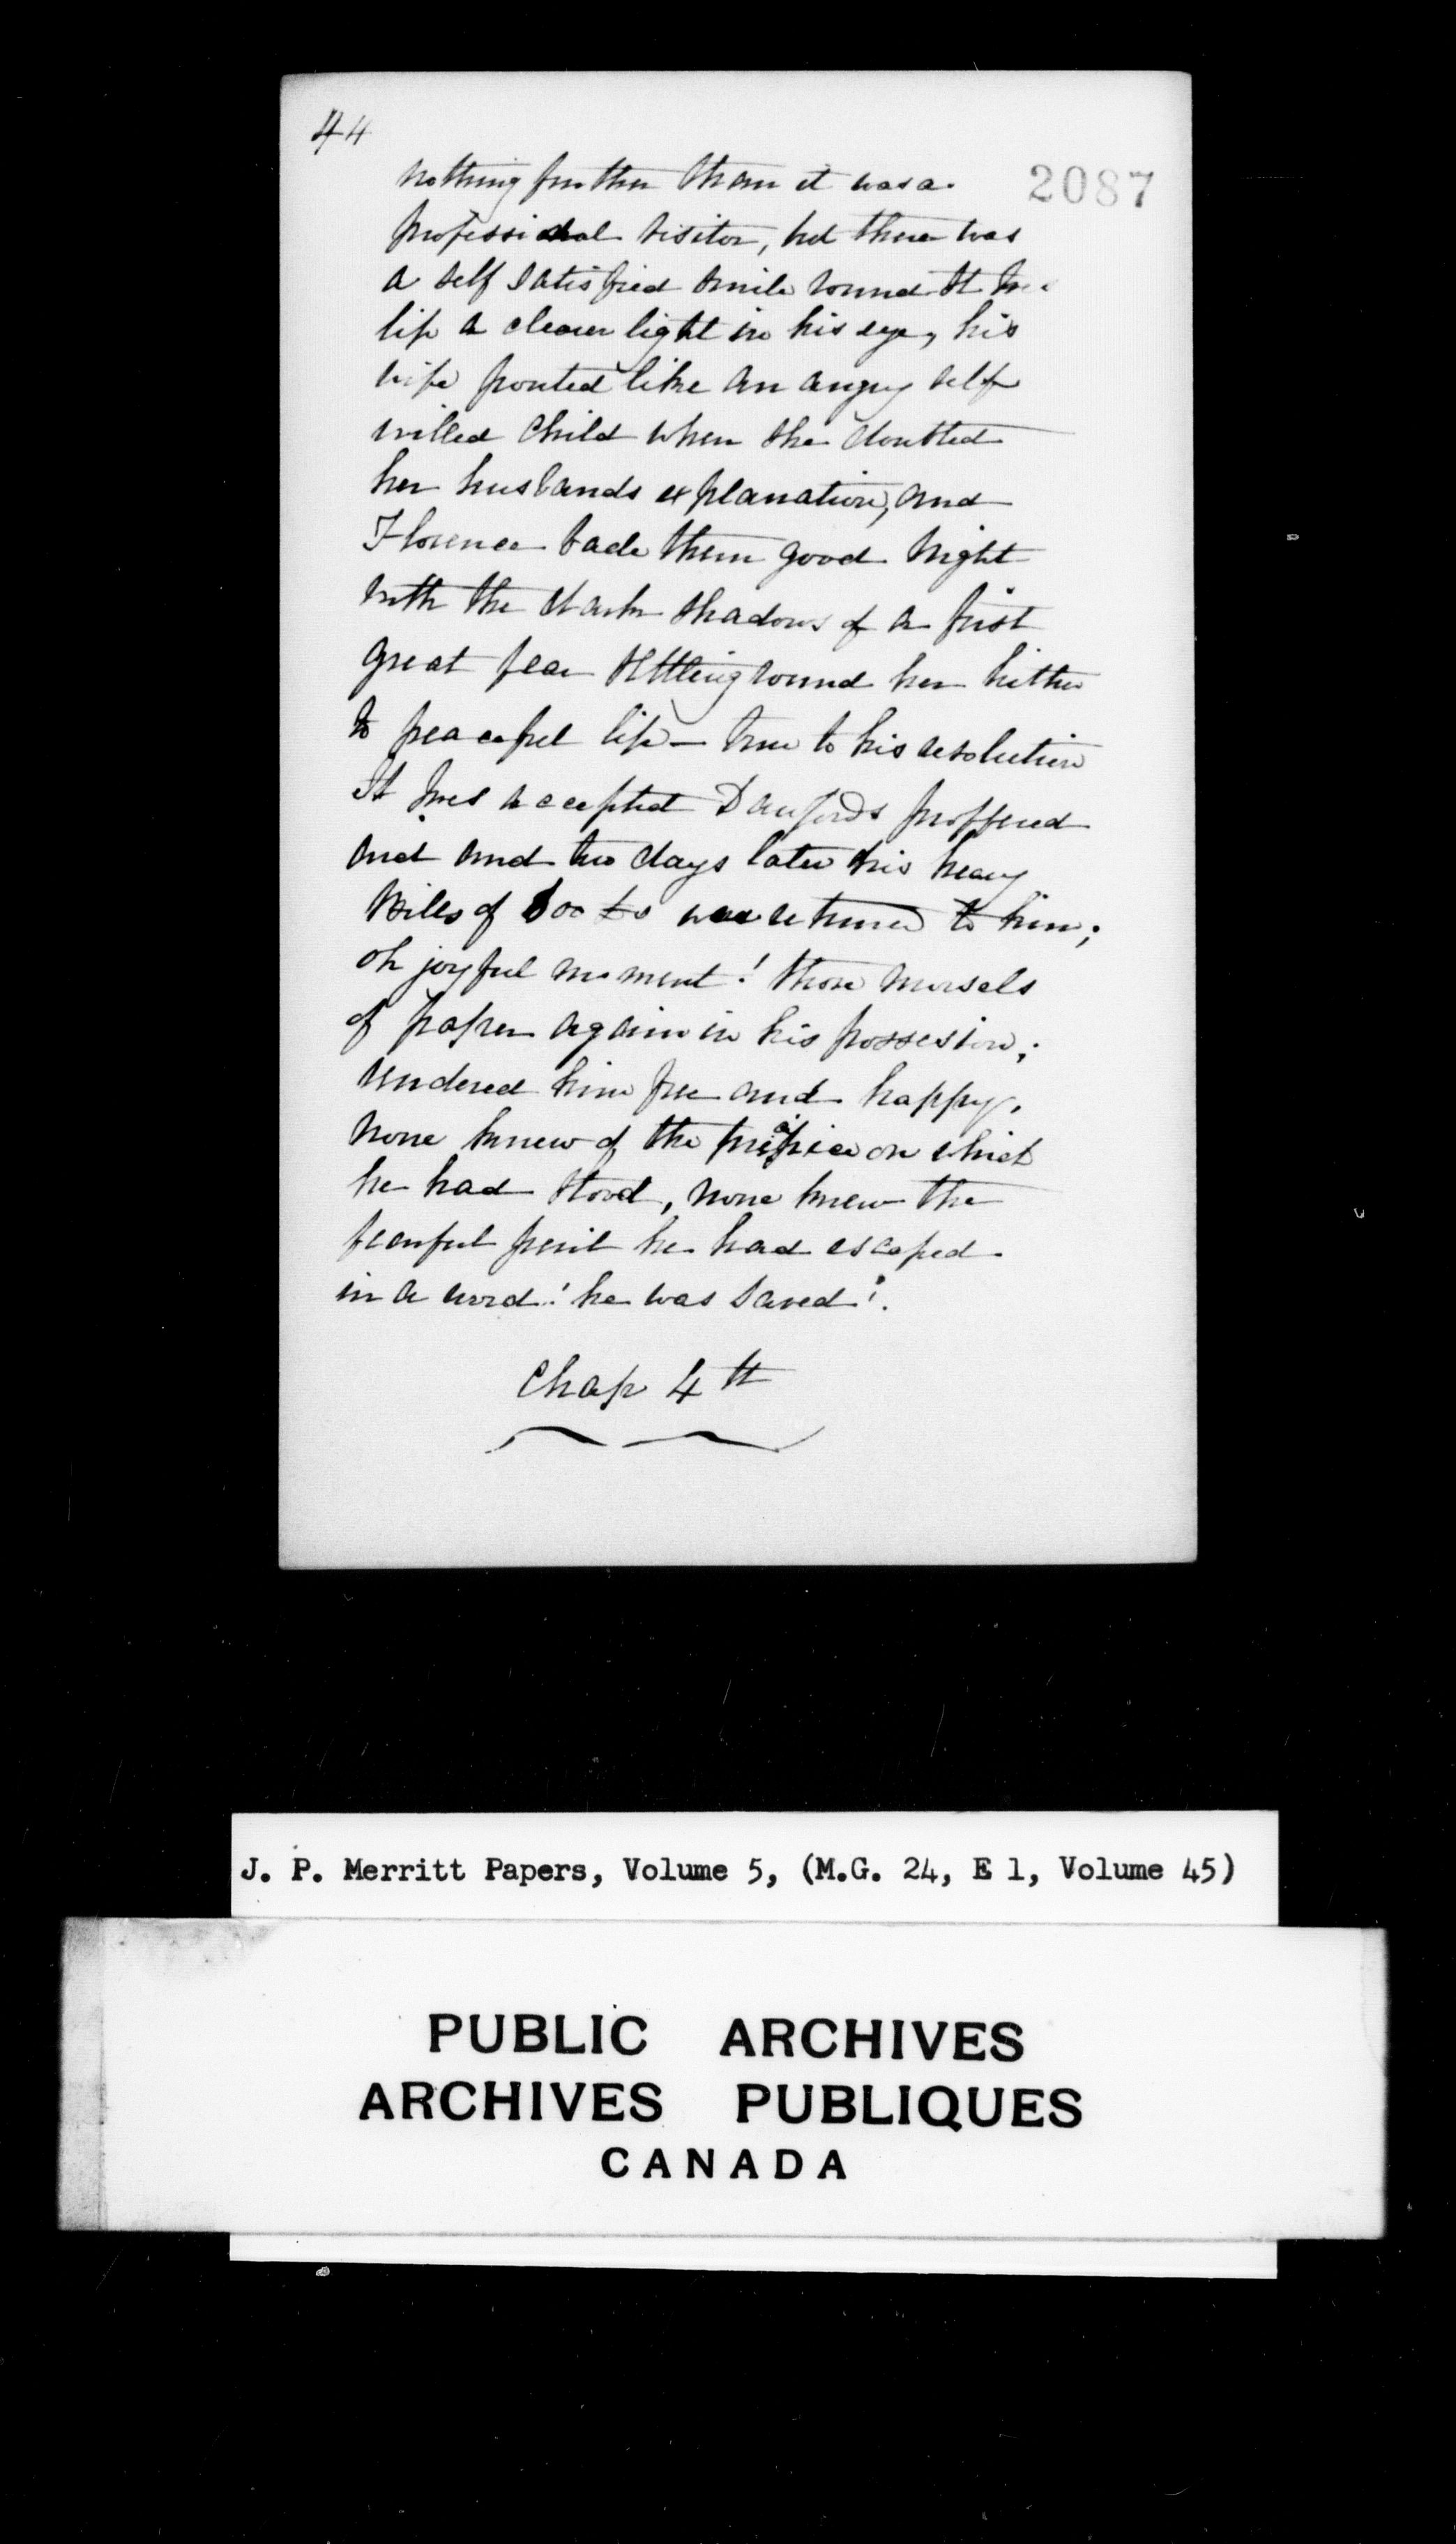 44
2087
nothing further than it was a
professional visitor, but there was
a self satisfied smile round St Ives
lip a clearer light in his eye, his
wife pouted like an angry self
willed child when she doubted
her husbands explanation, and
Florence bade them good night
with the dark shadows of a first
great fear settling round her hither
to peaceful life — true to his resolution
St Ives accepted Danfords proffered
aid and two days later his heavy
Bills of 800 £s was returned to him;
oh joyful moment! those morsels
of paper again in his possesion;
rendered him free and happy,
none knew of the precipice on which
he had stood, none knew the
fearful peril he had escaped
in a word! he was saved!.
Chap 4th
J. P. Merritt Papers, Volume 5, (M.G. 24, E 1, Volume 45)
PUBLIC ARCHIVES
ARCHIVES PUBLIQUES
CANADA